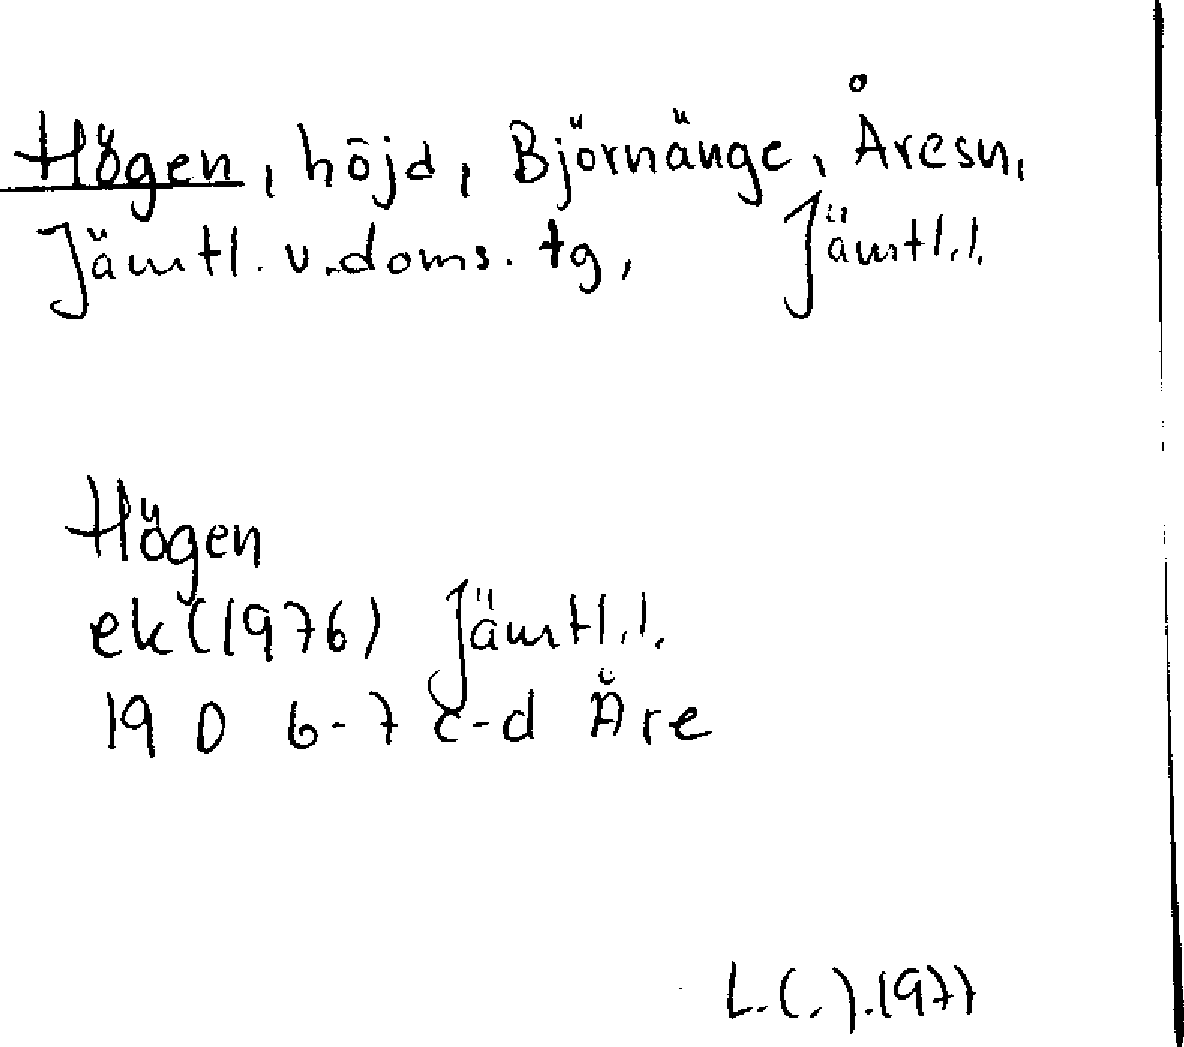 Högen, höjd, Björnänge, Åresn,
Jämtl. v. doms. tg, Jämtl.l.
Högen
ek (1976) Jämtl.l.
19 D 6-7 c-d Åre
L.(.).1977